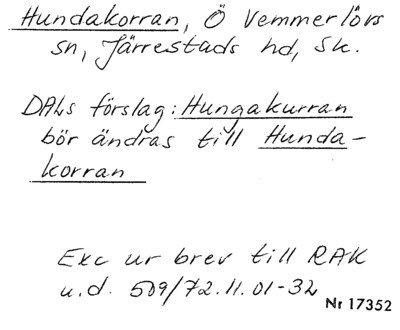 Hundakorran, Ö Vemmerlövs
sn, Järrestads hd, Sk.
DALs förslag: Hungakurran
bör ändras till Hunda-
korran
Exc ur brev till RAK
u.d. 509/72.11.01-32
Nr 17352